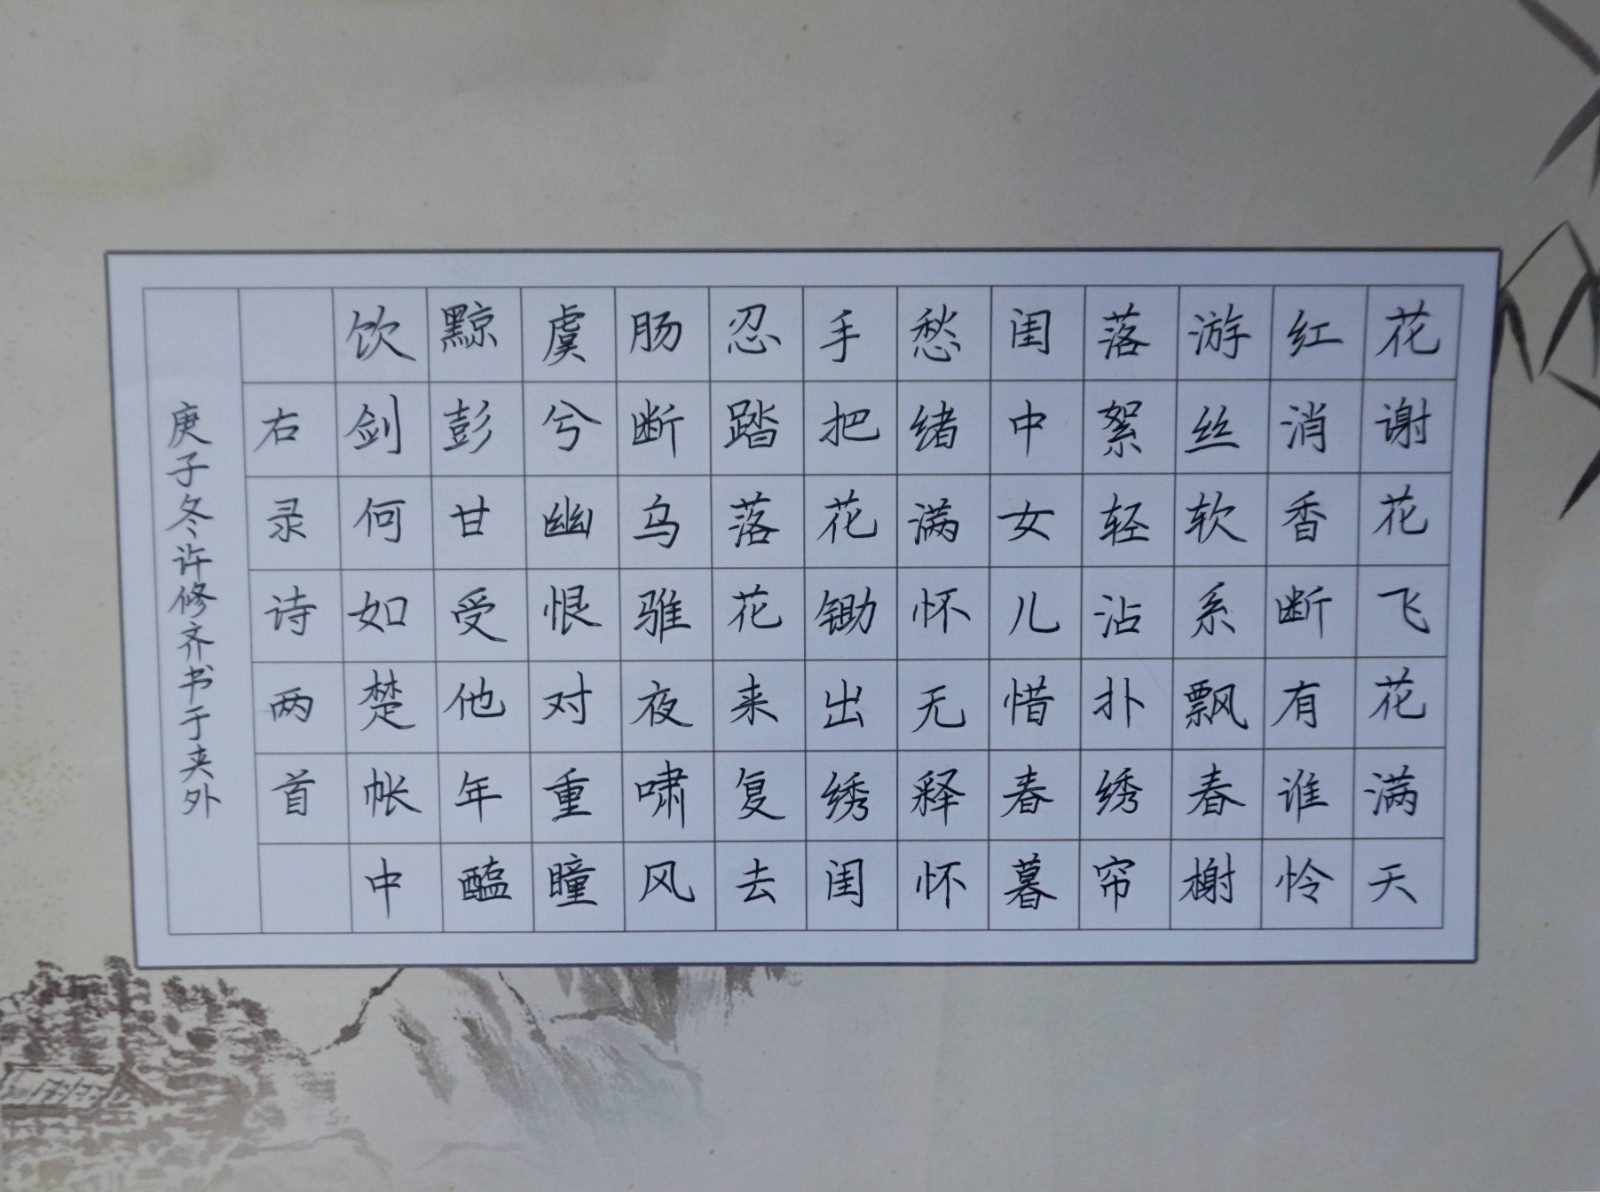 花谢花飞花满天
红消香断有谁怜
游丝软系飘春榭
落絮轻沾扑绣帘
闺中女儿惜春暮
愁绪满怀无释怀
手把花锄出绣闺
忍踏落花来复去
肠断乌骓夜啸风
虞兮幽恨对重瞳
黥彭甘受他年醢
饮剑何如楚帐中
右录诗两首
庚子冬许修齐书于夹外